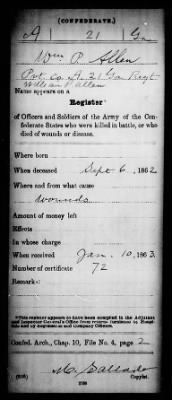 (CONFEDERATE.)
A 21 Ga
Wm P. Allen
Pvt. Co. A. 21 Ga Regt
William P. Allen
Name appears on a
Register*
of Officers and Soldiers of the Army of the Con-
federate States who were killed in battle, or who
died of wounds or disease.
Where born
When deceased Sept 6, 1862
Where and from what cause
Wounds
Amount of money left
Effects
In whose charge
When received Jan. 10, 1863.
Number of certificate 72
Remarks:
*This register appears to have been compiled in the Adjutant
and Inspector General's Office from returns furnished by Hospi-
tals and by Regimental and Company Officers.
Confed. Arch., Chap. 10, File No. 4, page 2
Copyist.